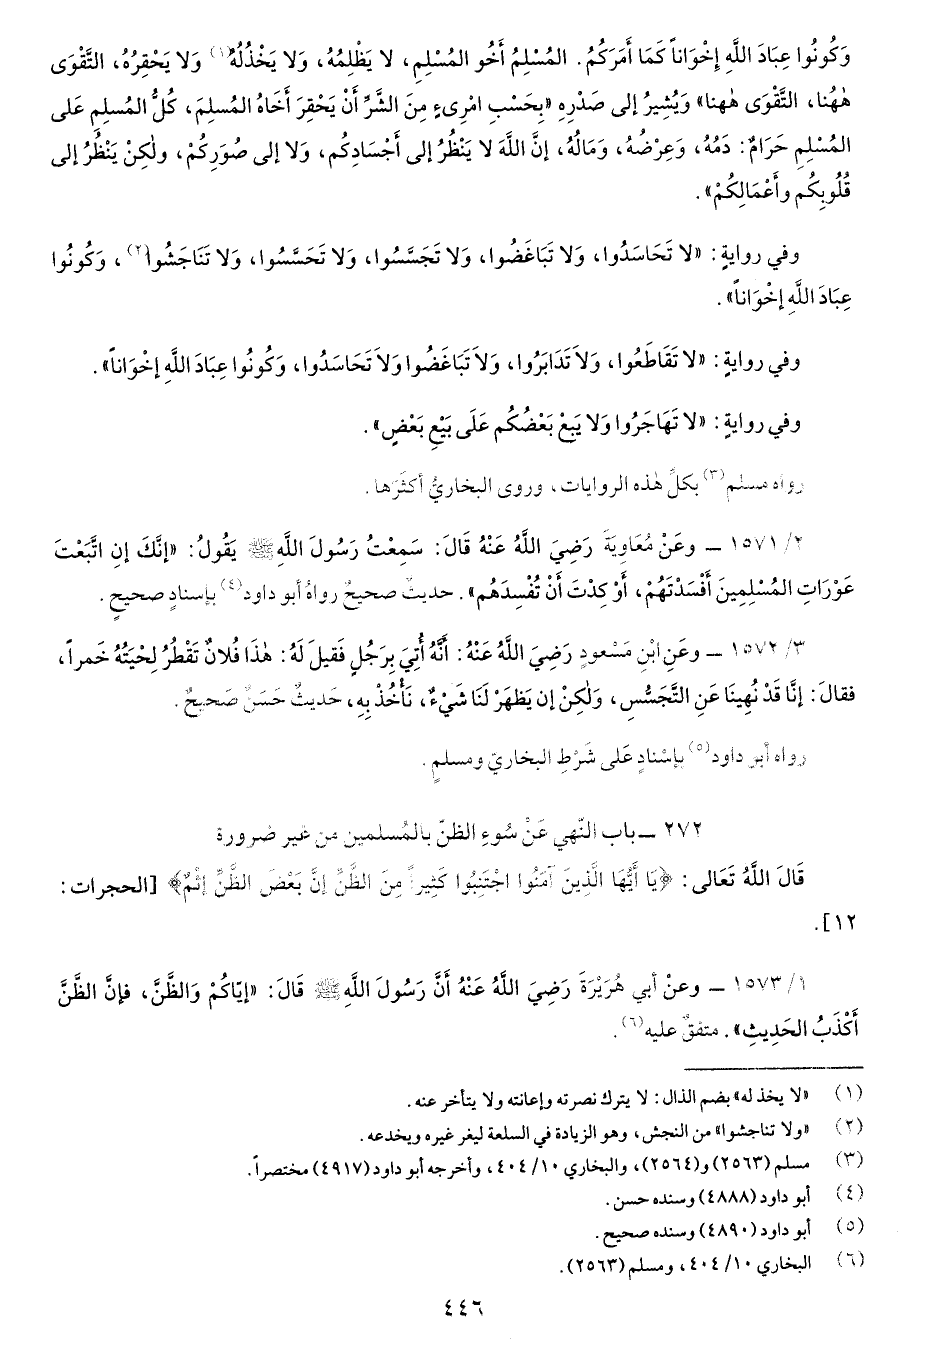 وَكُونُوا عِبَادَ اللَّهِ إِخْوَاناً كَمَا أَمَرَكُمْ. المُسْلِمُ أَخُو المُسْلِمِ، لا يَظْلِمُهُ، وَلا يَخْذُلُهُ(١) وَلا يَحْقِرُهُ، التَّقْوَى
هٰهُنا، التَّقْوَى هٰهنا» وَيُشِيرُ إلى صَدْرِهِ «بِحَسْبِ امْرِىءٍ مِنَ الشَّرِّ أَنْ يَحْقِرَ أَخَاهُ المُسْلِمَ، كُلُّ المُسْلِمِ عَلى
المُسْلِمِ حَرَامٌ: دَمُهُ، وَعِرْضُهُ، وَمَالُهُ، إنَّ اللَّهَ لا يَنْظُرُ إلى أَجْسَادِكُم، وَلا إلى صُوَرِكُمْ، ولٰكِنْ يَنْظُرُ إلى
قُلُوبِكُم وأَعْمَالِكُمْ».
وفي روايةٍ: «لا تَحَاسَدُوا، وَلا تَبَاغَضُوا، وَلا تَجَسَّسُوا، وَلا تَحَسَّسُوا، وَلا تَنَاجَشُوا(٢)، وَكُونُوا
عِبَادَ اللَّهِ إخْوَاناً».
وفي روايةٍ: «لا تَقَاطَعُوا، وَلاَ تَدَابَرُوا، وَلاَ تَبَاغَضُوا وَلاَ تَحَاسَدُوا، وَكُونُوا عِبَادَ اللَّهِ إخْوَاناً».
وفي روايةٍ: «لا تَهَاجَرُوا وَلا يَبِعْ بَعْضُكُم عَلَى بَيْعِ بَعْضٍ».
رواه مسلم(٣) بكلِّ هٰذه الروايات، وروى البخاريُّ أكثَرَها.
٢/ ١٥٧١ ــ وعَنْ مُعَاوِيَةَ رَضِيَ اللَّهُ عَنْهُ قَالَ: سَمِعْتُ رَسُولَ اللَّهِ ﷺ يَقُولُ: «إنَّكَ إنِ اتَّبَعْتَ
عَوْرَاتِ المُسْلِمِينَ أَفْسَدْتَهُمْ، أَوْ كِدْتَ أَنْ تُفْسِدَهُم». حديثٌ صحيحٌ رواهُ أبو داود(٤) بإسنادٍ صحيحٍ.
٣/ ١٥٧٢ ــ وعَنِ ابْنِ مَسْعودٍ رَضِيَ اللَّهُ عَنْهُ: أَنَّهُ أُتِيَ بِرَجُلٍ فَقيلَ لَهُ: هٰذَا فُلانٌ تَقْطُرُ لِحْيَتُهُ خَمراً،
فقالَ: إنَّا قَدْ نُهِينَا عَنِ التَّجَسُّسِ، وَلٰكِنْ إن يَظهَرْ لَنَا شَيْءٌ، نَأْخُذْ بِهِ، حَديثٌ حَسَنٌ صَحيحٌ.
رواه أبو داود(٥) بإسْنادٍ عَلى شَرْطِ البخاريّ ومسلمٍ.
٢٧٢ ــ باب النّهي عَنْ سُوءِ الظنّ بالمُسلمين من غير ضرورة
قَالَ اللَّهُ تَعَالى: ﴿يَا أَيُّهَا الَّذِينَ آمَنُوا اجْتَنِبُوا كَثِيراً مِنَ الظَّنِّ إنَّ بَعْضَ الظَّنِّ إثْمٌ﴾ [الحجرات:
١٢].
١/ ١٥٧٣ ــ وعنْ أبي هُرَيْرَةَ رَضِيَ اللَّهُ عَنْهُ أنَّ رَسُولَ اللَّهِ ﷺ قَالَ: «إيّاكُمْ وَالظَّنَّ، فإنَّ الظَّنَّ
أَكْذَبُ الحَدِيثِ». متفقٌ عليه(٦).
(١) «لا يخذ له» بضم الذال: لا يترك نصرته وإعانته ولا يتأخر عنه.
(٢) «ولا تناجشوا» من النجش، وهو الزيادة في السلعة ليغر غيره ويخدعه.
(٣) مسلم (٢٥٦٣) و(٢٥٦٤)، والبخاري ١٠/ ٤٠٤، وأخرجه أبو داود (٤٩١٧) مختصراً.
(٤) أبو داود (٤٨٨٨) وسنده حسن.
(٥) أبو داود (٤٨٩٠) وسنده صحيح.
(٦) البخاري ١٠/ ٤٠٤، ومسلم (٢٥٦٣).
٤٤٦